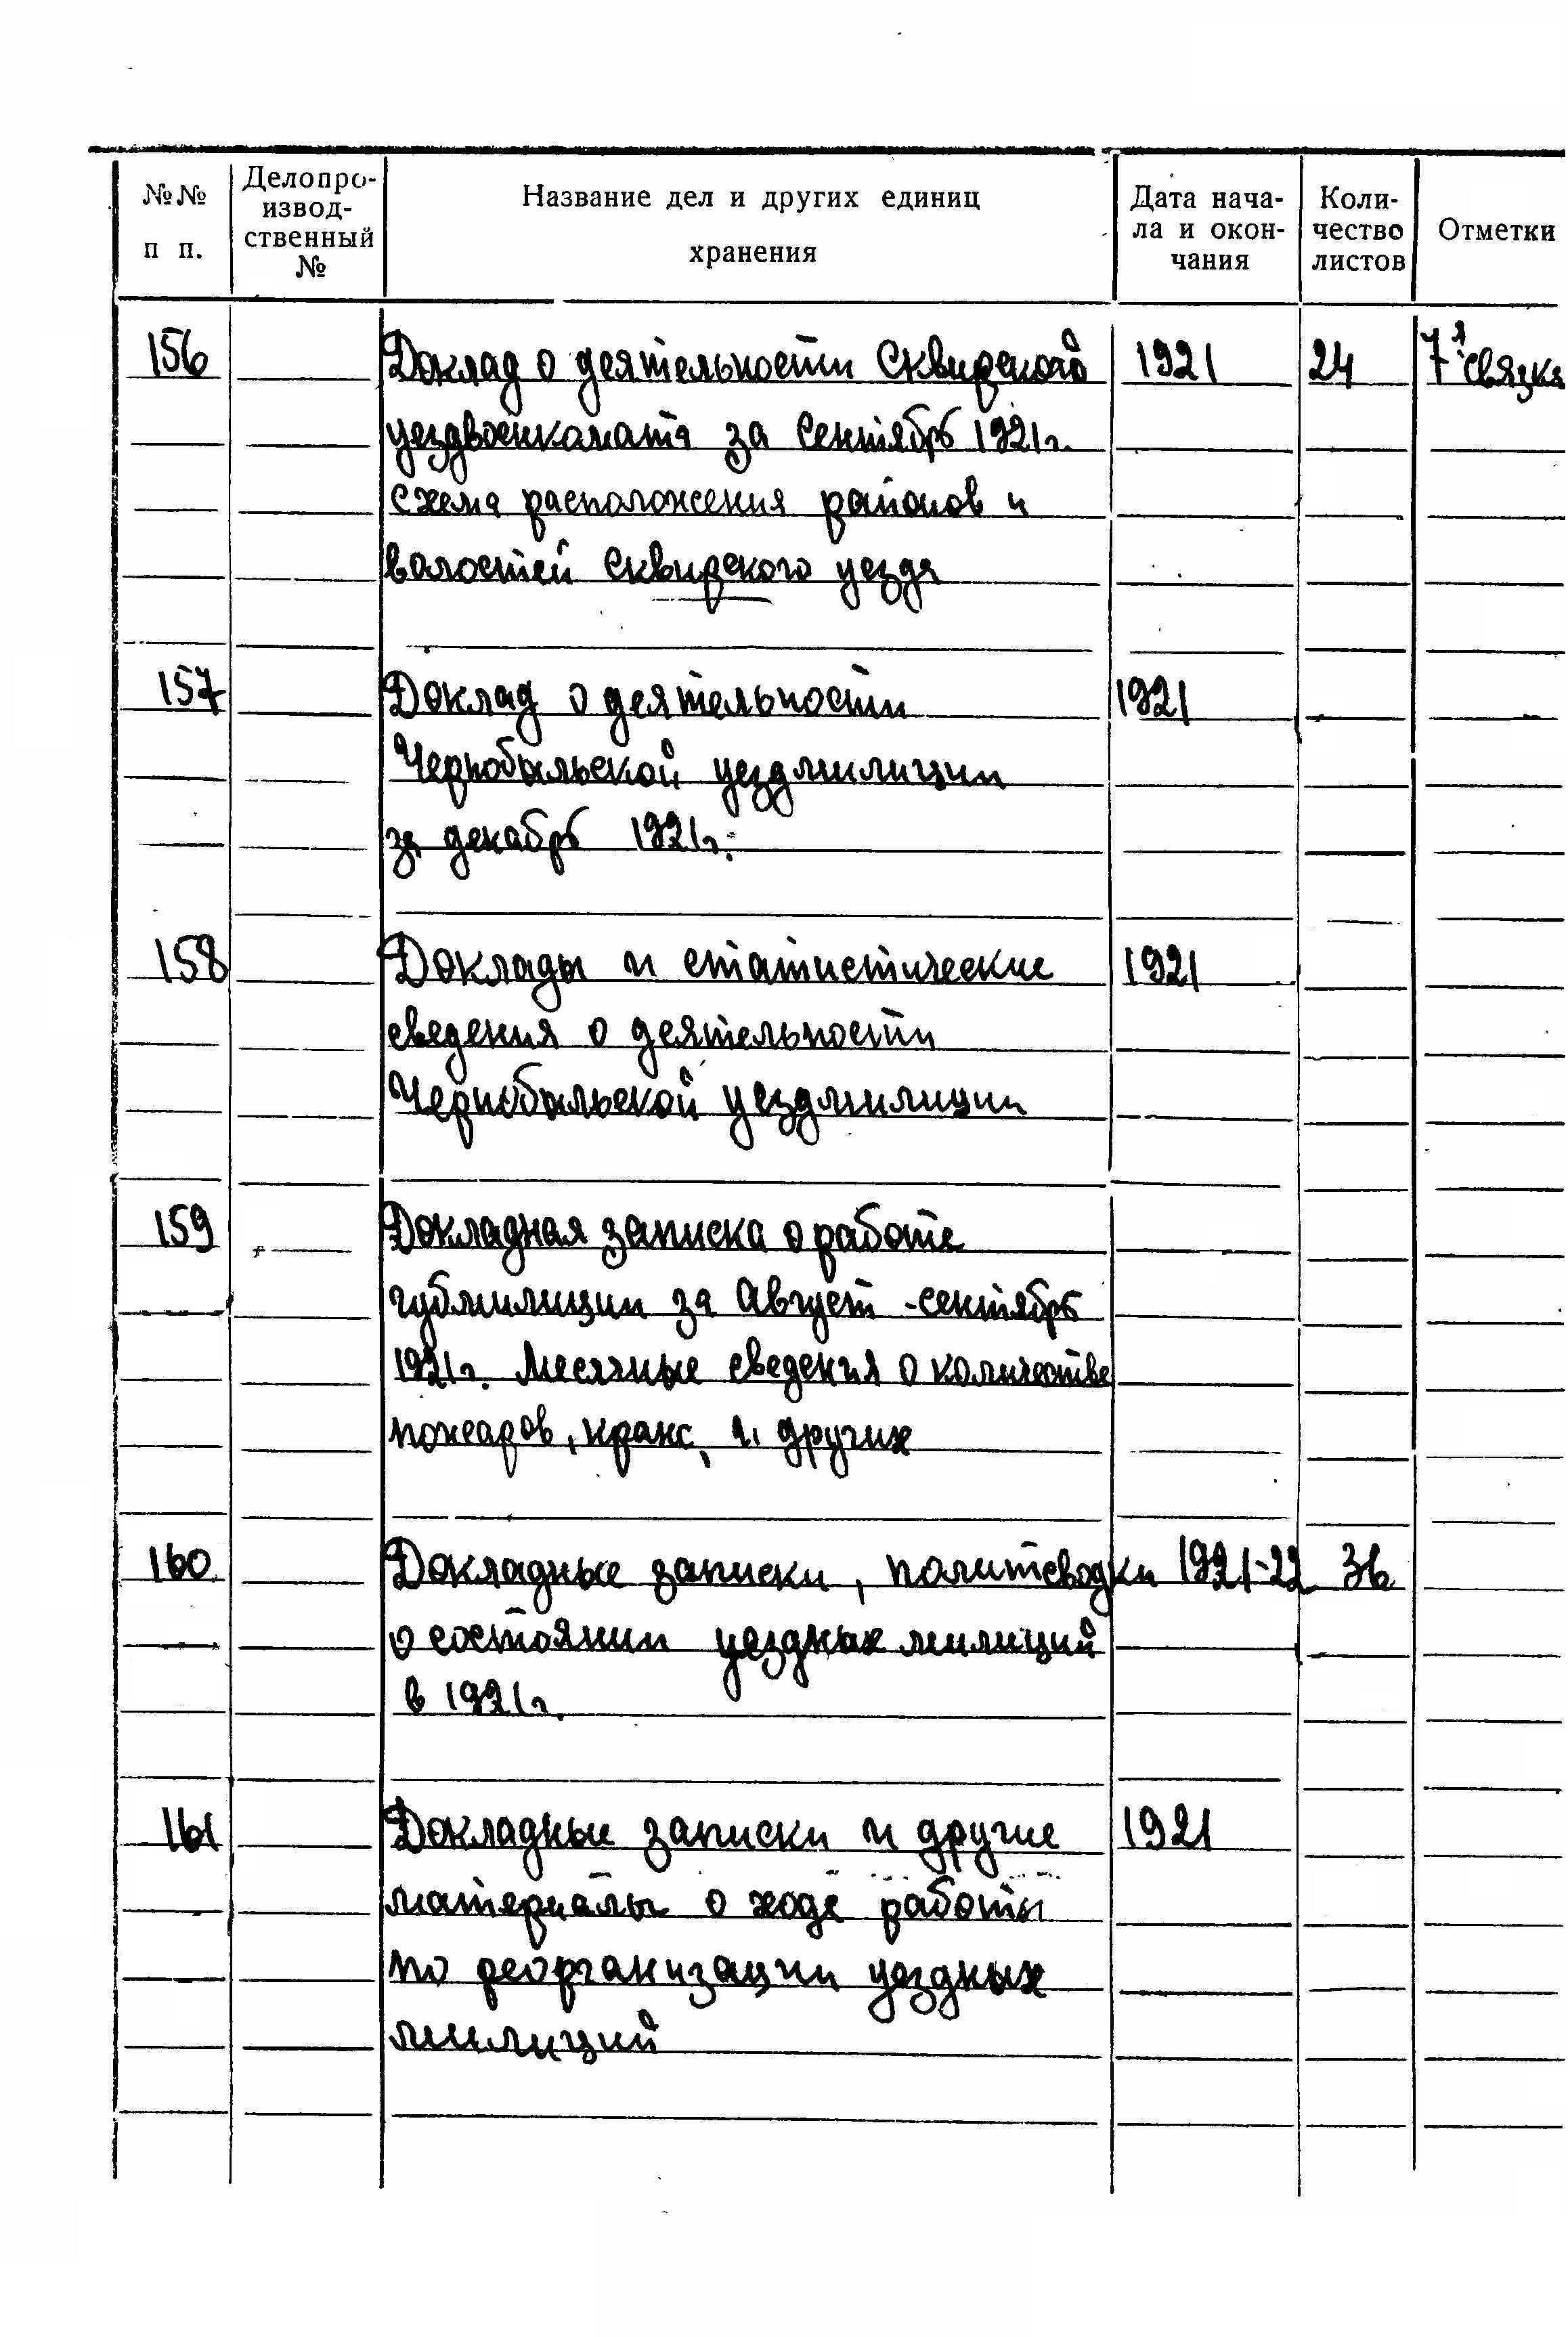 №№ п п.
Делопро-
извод-
ственный
№
Название дел и других единиц
хранения
Дата нача-
ла и окон-
чания
Коли-
чество
листов
Отметки
156 Доклад о деятельности Сквирского 1921 24 7я связка
уездвоенкомата за Сентябрь 1921г.
Схема расположения районов и
волостей Сквирского уезда
157 Доклад о деятельности 1921
Чернобыльской уездмилиции
за декабрь 1921г.
158 Доклады и статистические 1921
сведения о деятельности
Чернобыльской уездмилиции
159 Докладная записка о работе
губмилиции за Август-сентябрь
1921г. Месячные сведения о количестве
пожаров, краж, и других
160 Докладные записки, политсводки 1921-22 36
о состоянии уездных милиций
в 1921г.
161 Докладные записки и другие 1921
материалы о ходе работы
по реорганизации уездных
милиций